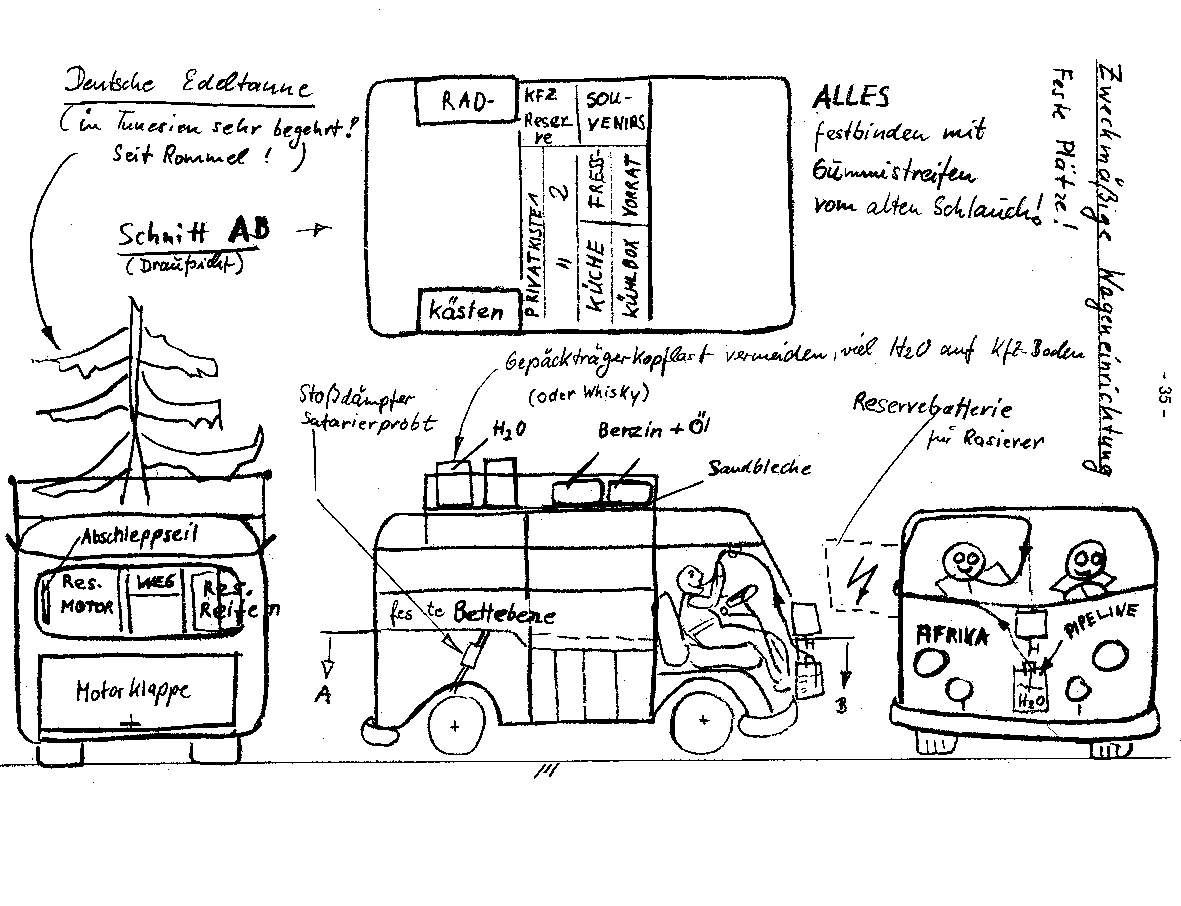 Deutsche Edeltanne
(in Tunesien sehr begehrt!
Seit Rommel! )
Schnitt AB
(Draufsicht)
RAD-
kästen
KFZ
Reser
ve
SOU-
VENIRS
PRIVATKISTE 1
" 2
FRESS-
VORRAT
KÜCHE
KÜHLBOX
ALLES
festbinden mit
Gummistreifen
vom alten Schlauch!
Zweckmäßige Wageneinrichtung
Feste Plätze!
- 35 -
Gepäckträgerkopflast vermeiden, viel H2O auf Kfz-Boden
(oder Whisky)
Stoßdämpfer
Safarierprobt
H2O
Benzin + Öl
Sandbleche
Reservebatterie
für Rasierer
Abschleppseil
Res.
MOTOR
WEG
Res.
Reifen
Motorklappe
feste Bettebene
A
B
AFRIKA
PIPELINE
H2O